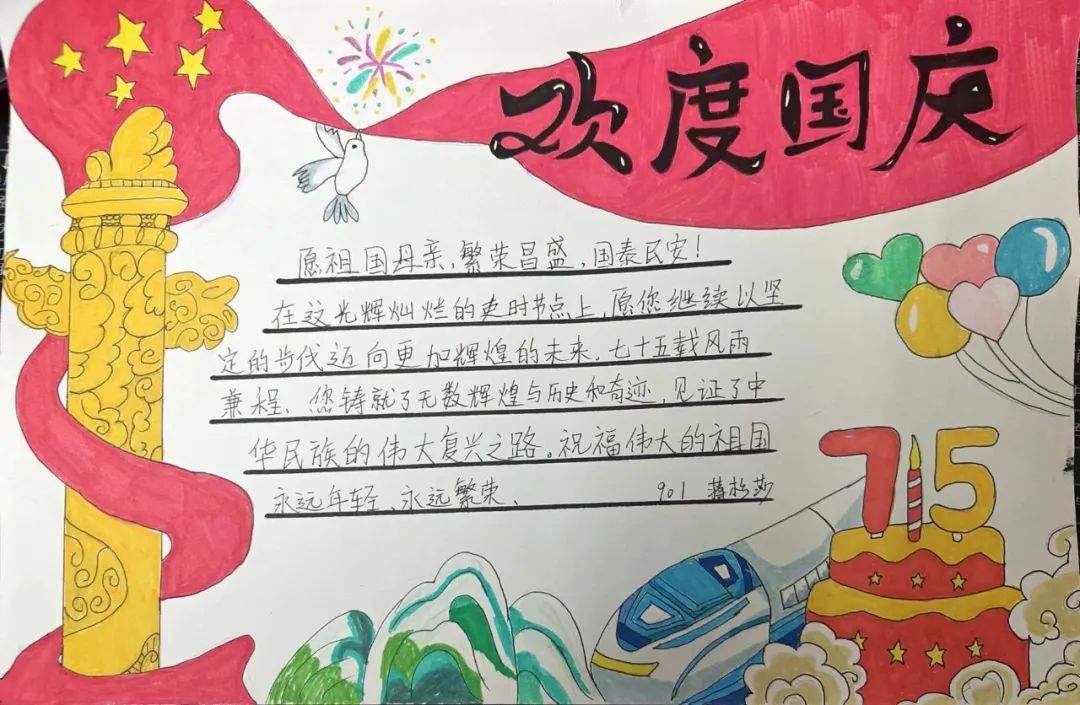 欢度国庆
愿祖国母亲,繁荣昌盛,国泰民安!
在这光辉灿烂的史时节点上,愿您继续以坚
定的步伐迈向更加辉煌的未来.七十五载风雨
兼程、您铸就了无数辉煌与历史和奇迹,见证了中
华民族的伟大复兴之路。祝福伟大的祖国
永远年轻、永远繁荣、
901 蒋
75